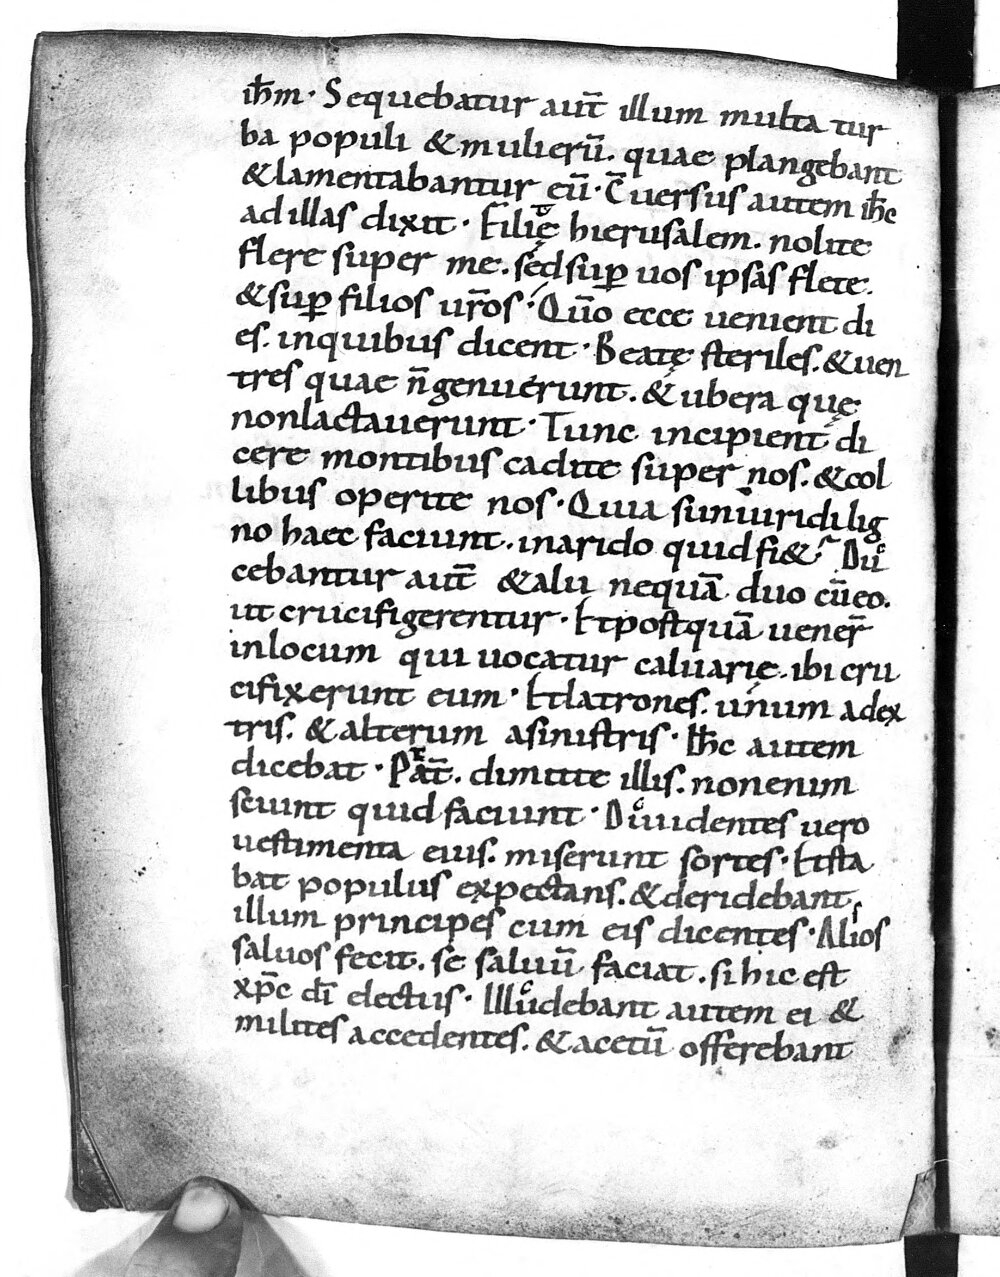 ih̄m · Sequebatur aut̄ illum multa tur
ba populi & mulierū. quae plangebant
& lamentabantur eū · C̄uersus autem ih̄c
ad illas dixit · Filię hierusalem. nolite
flere super me. sed sup̄ uos ipsas flete.
& sup̄ filios ur̄os · Qūo ecce uenient di
es. in quibus dicent · Beatę steriles. & uen
tres quae n̄ genuerunt. & ubera quę
non lactauerunt · Tunc incipient di
cere montibus cadite super nos. & col
libus operite nos · Quia si in uiridi lig
no haec faciunt. in arido quid fi& Du
cebantur aut̄ & alii nequā duo cū eo.
ut crucifigerentur · Et postquā uener̄
in locum qui uocatur caluarię. ibi cru
cifixerunt eum · Et latrones. unum a dex
tris. & alterum a sinistris · Ih̄c autem
dicebat · Pat̄. dimitte illis. non enim
sciunt quid faciunt · Diuidentes uero
uestimenta eius. miserunt sortes · Et sta
bat populus expectans. & deridebant
illum principes cum eis dicentes · Alios
saluos fecit. se saluū faciat. si hic est
xp̄c dī electus · Illudebant autem ei &
milites accedentes. & acetū offerebant